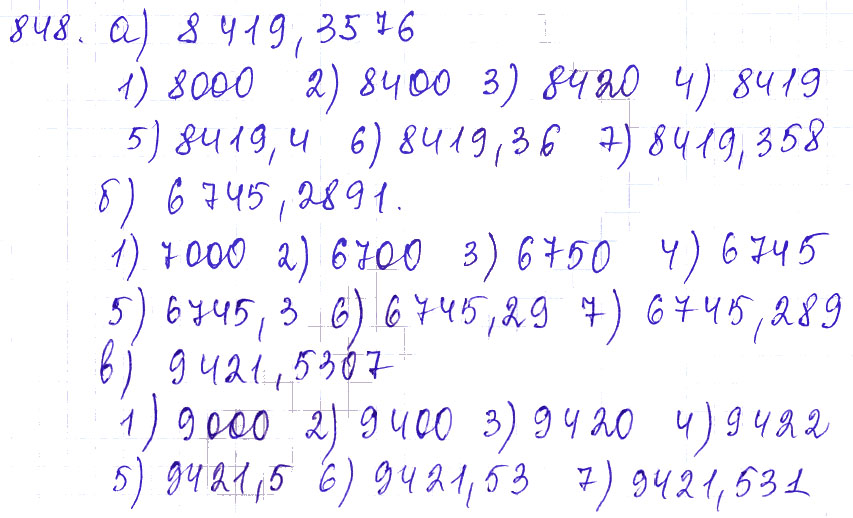 848. а) 8419,3576
1) 8000 2) 8400 3) 8420 4) 8419
5) 8419,4 6) 8419,36 7) 8419,358
б) 6745,2891.
1) 7000 2) 6700 3) 6750 4) 6745
5) 6745,3 6) 6745,29 7) 6745,289
в) 9421,5307
1) 9000 2) 9400 3) 9420 4) 9422
5) 9421,5 6) 9421,53 7) 9421,531